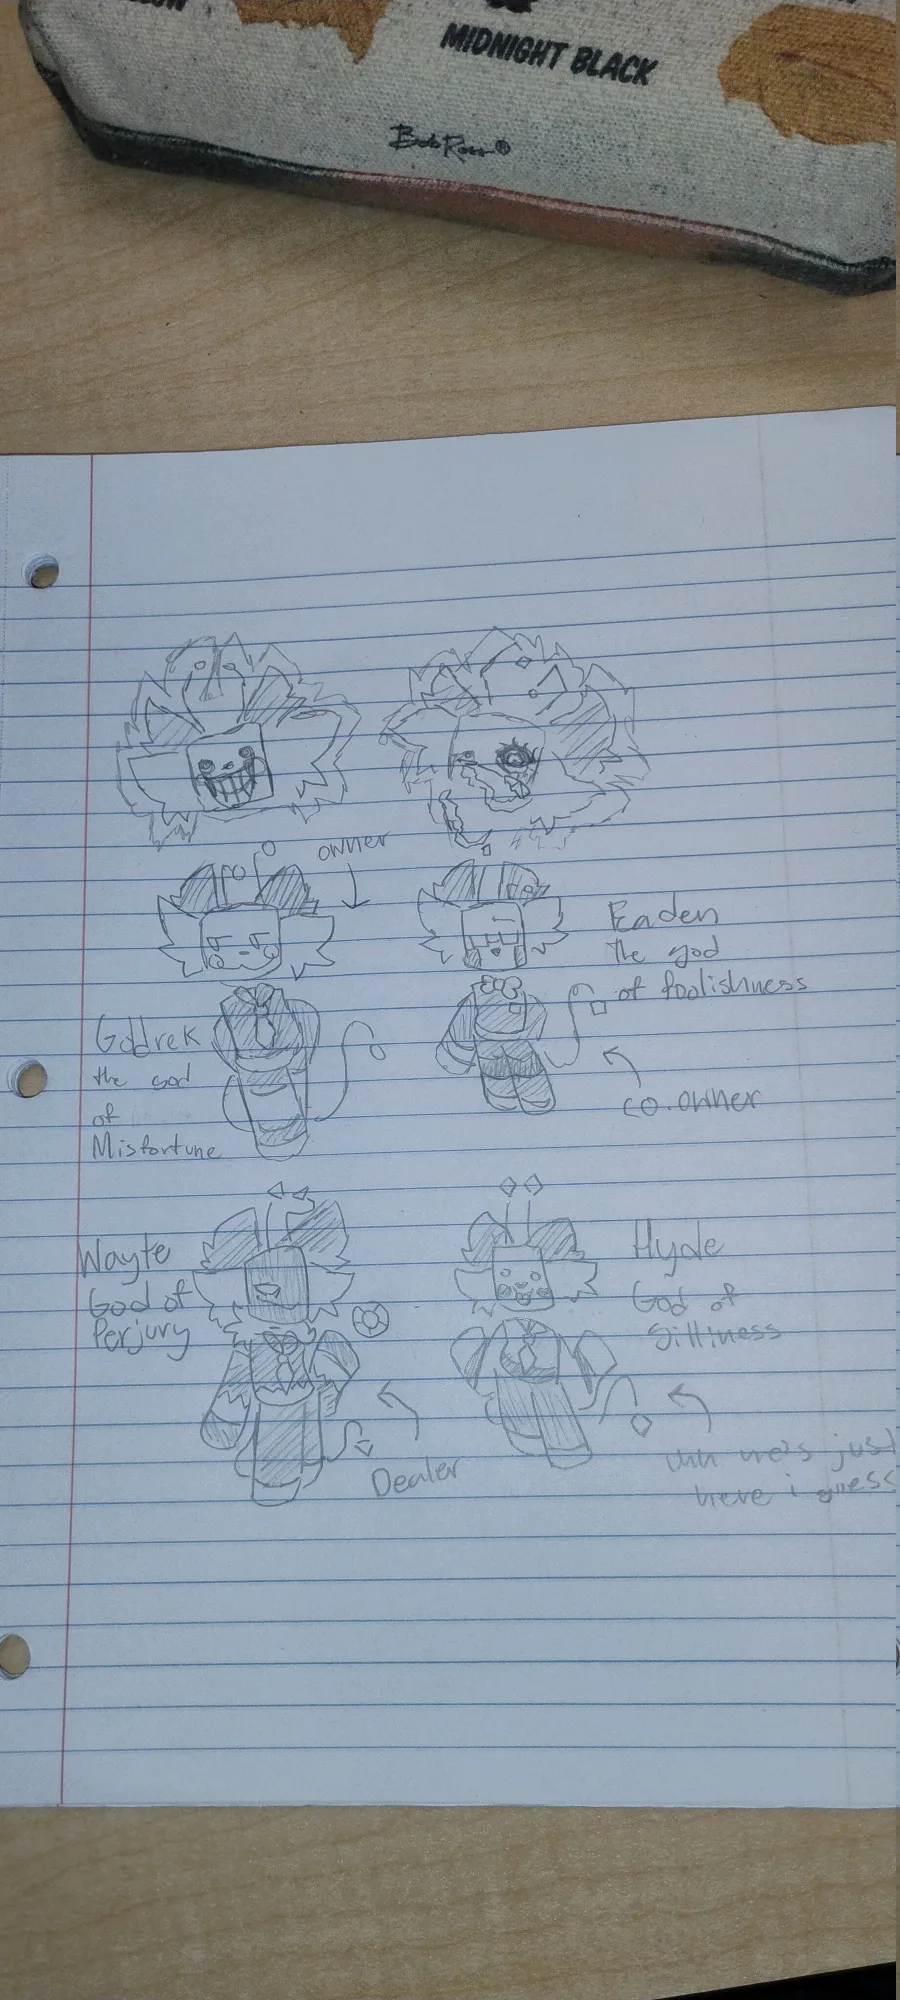 MIDNIGHT BLACK
Bob Ross®
owner
Eaden
the god
of foolishness
Goddrek
the god
of
Misfortune
co.owner
Wayte
God of
Perjury
Hyde
God of
Silliness
Dealer
he's just
here i guess